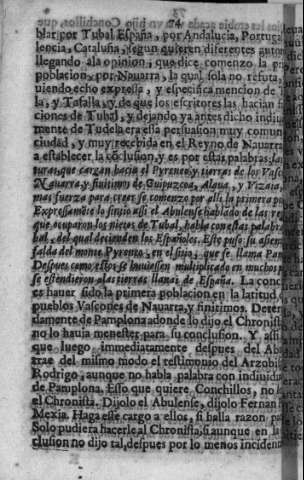 74
blar por Tubal España, por Andalucia, Portuga
lencia, Cataluña, segun quieren diferentes autor
llegando ala opinion, que dize comenzo la pr
poblacion, por Nauarra, la qual sola no refuta,
uiendo echo expressa, y especifica mencion de
la, y Tafalla, y de que los escritores las hacian f
ciones de Tubal, y dejando ya antes dicho indiui
mente de Tudela era esta persuasion muy comun
ciudad, y muy recebida en el Reyno de Nauarra
a establecer la coclusion, y es por estas palabras: Las
turas, que cargan hacia el Pyreneo, y tierras de los Vasco
Nauarra, y finitimos de Guipuzcoa, Alaua, y Vizcaia,
mas fuerza para creer se comenzo por alli la primera po
Expressamẽte lo sintio assi el Abulense hablado de las re
que ocuparon los nietos de Tubal, habla con estas palabr
bal, del qual decienden los Españoles. Este puso su asien
falda del monte Pyreneo, en el sitio, que se llama Pam
Despues como estos se huuiessen multiplicado en muchos p
se estendieron alas tierras llanas de España. La conc
es hauer sido la primera poblacion en la latitud d
pueblos Vascones de Nauarra, y finitimos. Deter
damente de Pamplona adonde lo dijo el Chronista
no lo hauia menester para su conclusion. Y assi
que luego immediatamente despues del Abu
trae del mismo modo el testimonio del Arzobis
Rodrigo, aunque no habla palabra con indiuidu
de Pamplona. Esso que quiere, Conchillos, no l
el Chronista. Dijolo el Abulense, dijolo Fernan
Mexia. Haga esse cargo a ellos, si halla razon pa
Solo pudiera hacerle al Chronista, si aunque en la
clusion no dijo tal, despues por lo menos incidenta